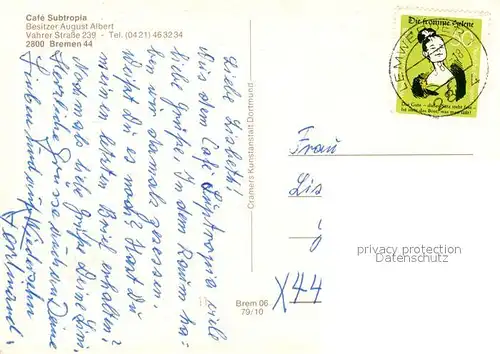 Café Subtropia
Besitzer August Albert
Vahrer Straße 239 - Tel. (0421) 463234
2800 Bremen 44
Liebe Lisbeth!
Aus dem Café Subtropia viele
liebe Grüße. In dem Raum ha-
ben wir damals gesessen.
Weißt Du es noch? Hast Du
meinen letzten Brief erhalten?
Nochmals liebe Grüße Deine
Herzliche Grüsse und
und auf Wiedersehn
Ferdinand.
Cramers Kunstanstalt Dortmund
Brem 06
79/10
Die fromme Helene
Das Gute – dieser Satz steht fest –
ist stets das Böse, was man läßt!
LEMWERDER
Frau
Lis
privacy protection
X 44